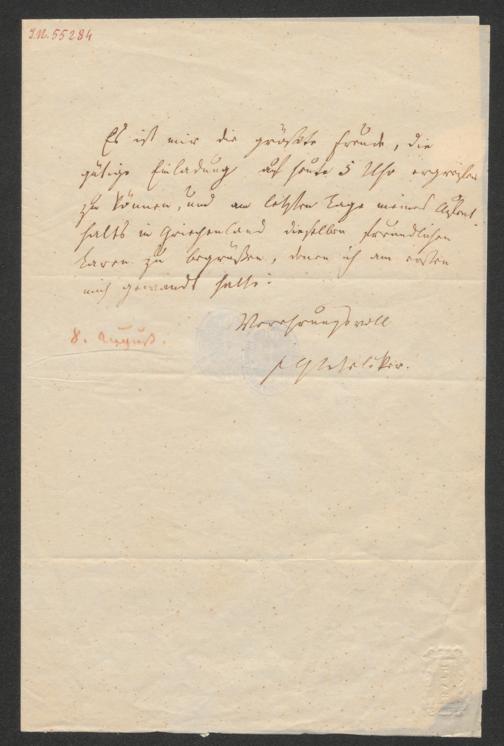 I.N. 55284
Es ist mir die größte Freude, die
gütige Einladung auf heute 5 Uhr ergreifen
zu können, und am letzten Tage meines Aufent-
halts in Griechenland dieselben freundlichen
Laren zu begrüßen, denen ich am ersten
mich gewandt hatte.
Verehrungsvoll
8. August.